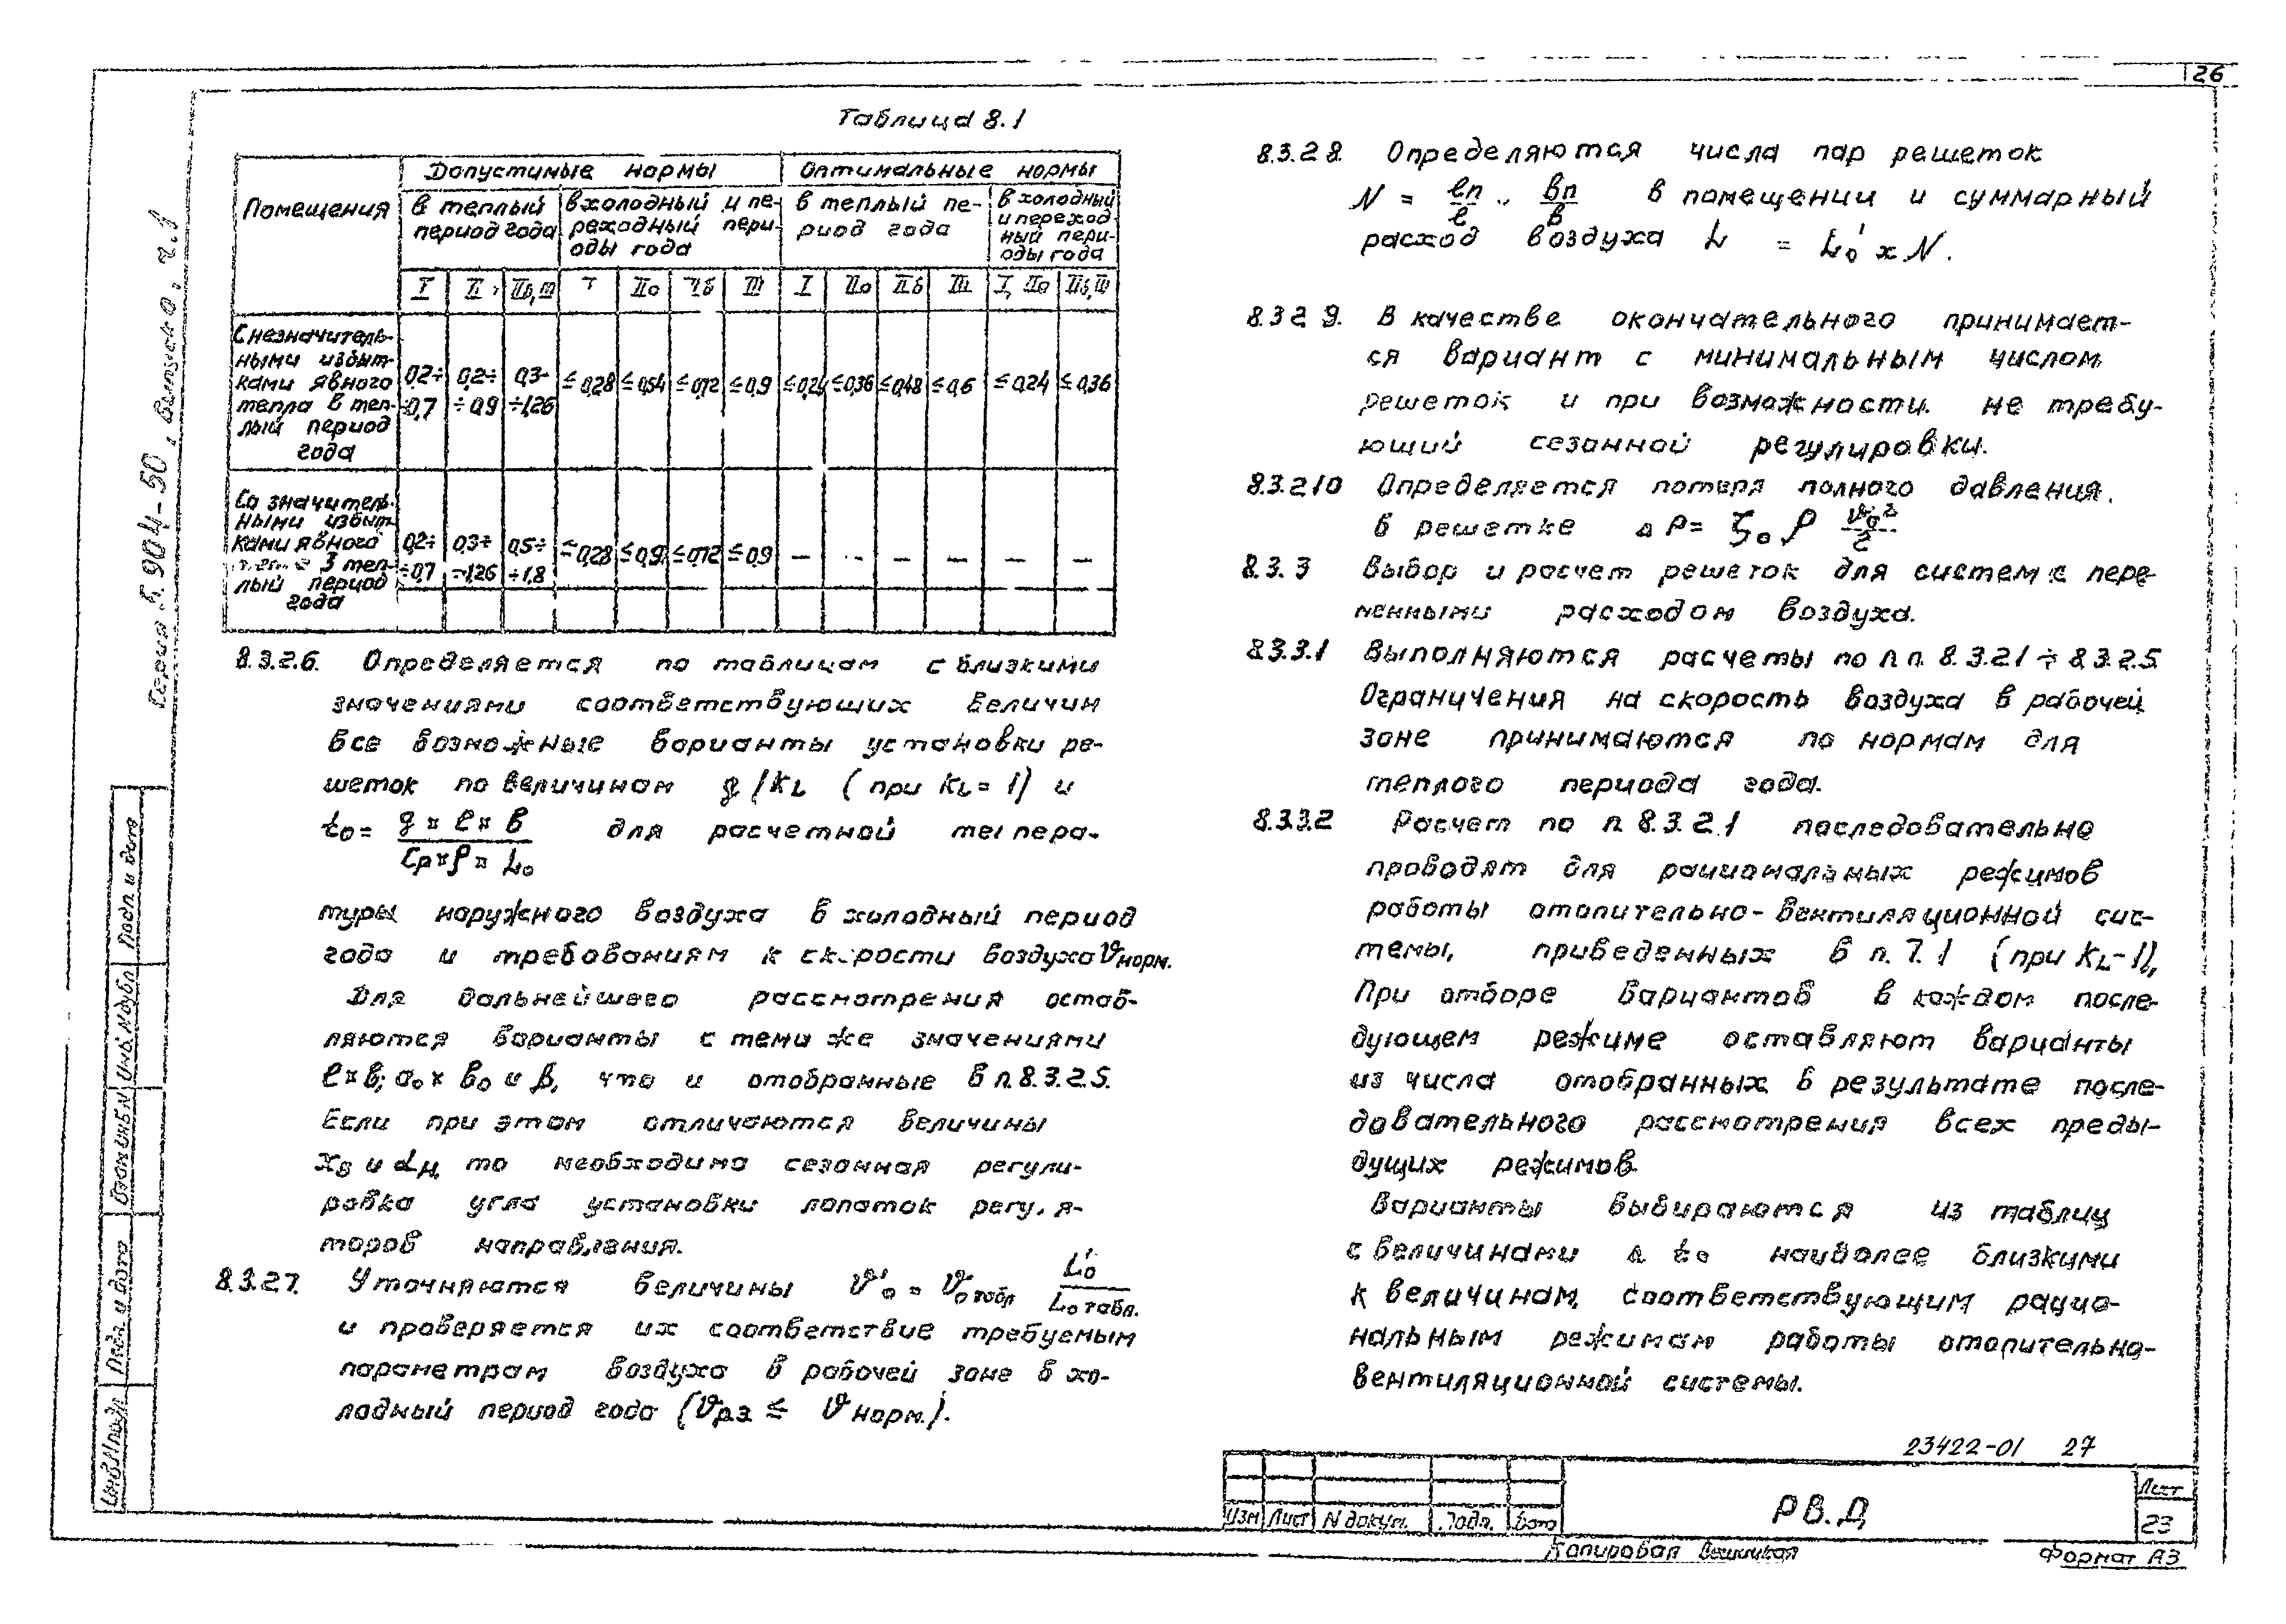 26
Таблица 8.1
Помещения
Допустимые нормы
Оптимальные нормы
в теплый период года
в холодный и переходный периоды года
в теплый период года
в холодный и переходный периоды года
I II IIб,III I IIа IIб III I IIа IIб III I, IIа IIб,III
С незначитель-
ными избыт-
ками явного
тепла в теп-
лый период
года
0,2÷ 0,2÷ 0,3- ≤0,28 ≤0,54 ≤0,72 ≤0,9 ≤0,24 ≤0,36 ≤0,48 ≤0,6 ≤0,24 ≤0,36
÷0,7 ÷0,9 ÷1,26
Со значитель-
ными избыт-
ками явного
теп-
лый период
года
0,2÷ 0,3÷ 0,5÷ ≤0,28 ≤0,9 ≤0,72 ≤0,9 — — — — — —
÷0,7 ÷1,26 ÷1,8
8.3.2.6. Определяется по таблицам с близкими
значениями соответствующих величин
все возможные варианты установки ре-
шеток по величинам q/KL (при KL=1) и
t0 = q × l × b / Cp × ρ × L0 для расчетной темпера-
туры наружного воздуха в холодный период
года и требованиям к скорости воздуха Vнорм.
Для дальнейшего рассмотрения остав-
ляются варианты с теми же значениями
l×b; a0×b0 и β, что и отобранные в п.8.3.2.5.
Если при этом отличаются величины
xв и αн, то необходима сезонная регули-
ровка угла установки лопаток регуля-
торов направления.
8.3.2.7. Уточняются величины V'0 = V0 табл L'0 / L0 табл.
и проверяется их соответствие требуемым
параметрам воздуха в рабочей зоне в хо-
лодный период года (Vр.з ≤ Vнорм.).
8.3.2.8. Определяются числа пар решеток
N = lп/l · bп/b в помещении и суммарный
расход воздуха L = L'0 × N.
8.3.2.9. В качестве окончательного принимает-
ся вариант с минимальным числом
решеток и при возможности не требу-
ющий сезонной регулировки.
8.3.2.10 Определяется потеря полного давления
в решетке ΔP = ζ0 ρ V0²/2
8.3.3 Выбор и расчет решеток для систем с пере-
менными расходом воздуха.
8.3.3.1 Выполняются расчеты по п.п. 8.3.2.1 ÷ 8.3.2.5
Ограничения на скорость воздуха в рабочей
зоне принимаются по нормам для
теплого периода года.
8.3.3.2 Расчет по п. 8.3.2.1 последовательно
проводят для рациональных режимов
работы отопительно-вентиляционной сис-
темы, приведенных в п. 7.1 (при KL-1),
При отборе вариантов в каждом после-
дующем режиме оставляют варианты
из числа отобранных в результате после-
довательного рассмотрения всех преды-
дущих режимов.
Варианты выбираются из таблиц
с величинами Δ t0 наиболее близкими
к величинам, соответствующим рацио-
нальным режимам работы отопительно-
вентиляционной системы.
23422-01 27
Изм Лист N докум. Подп. Дата
РВ.Д
Лист
23
Копировал
Формат А3
Серия 5.904-50, выпуск 0, ч.1
Подп. и дата
Инв.N дубл
Взам инв.N
Подп. и дата
Инв.N подл